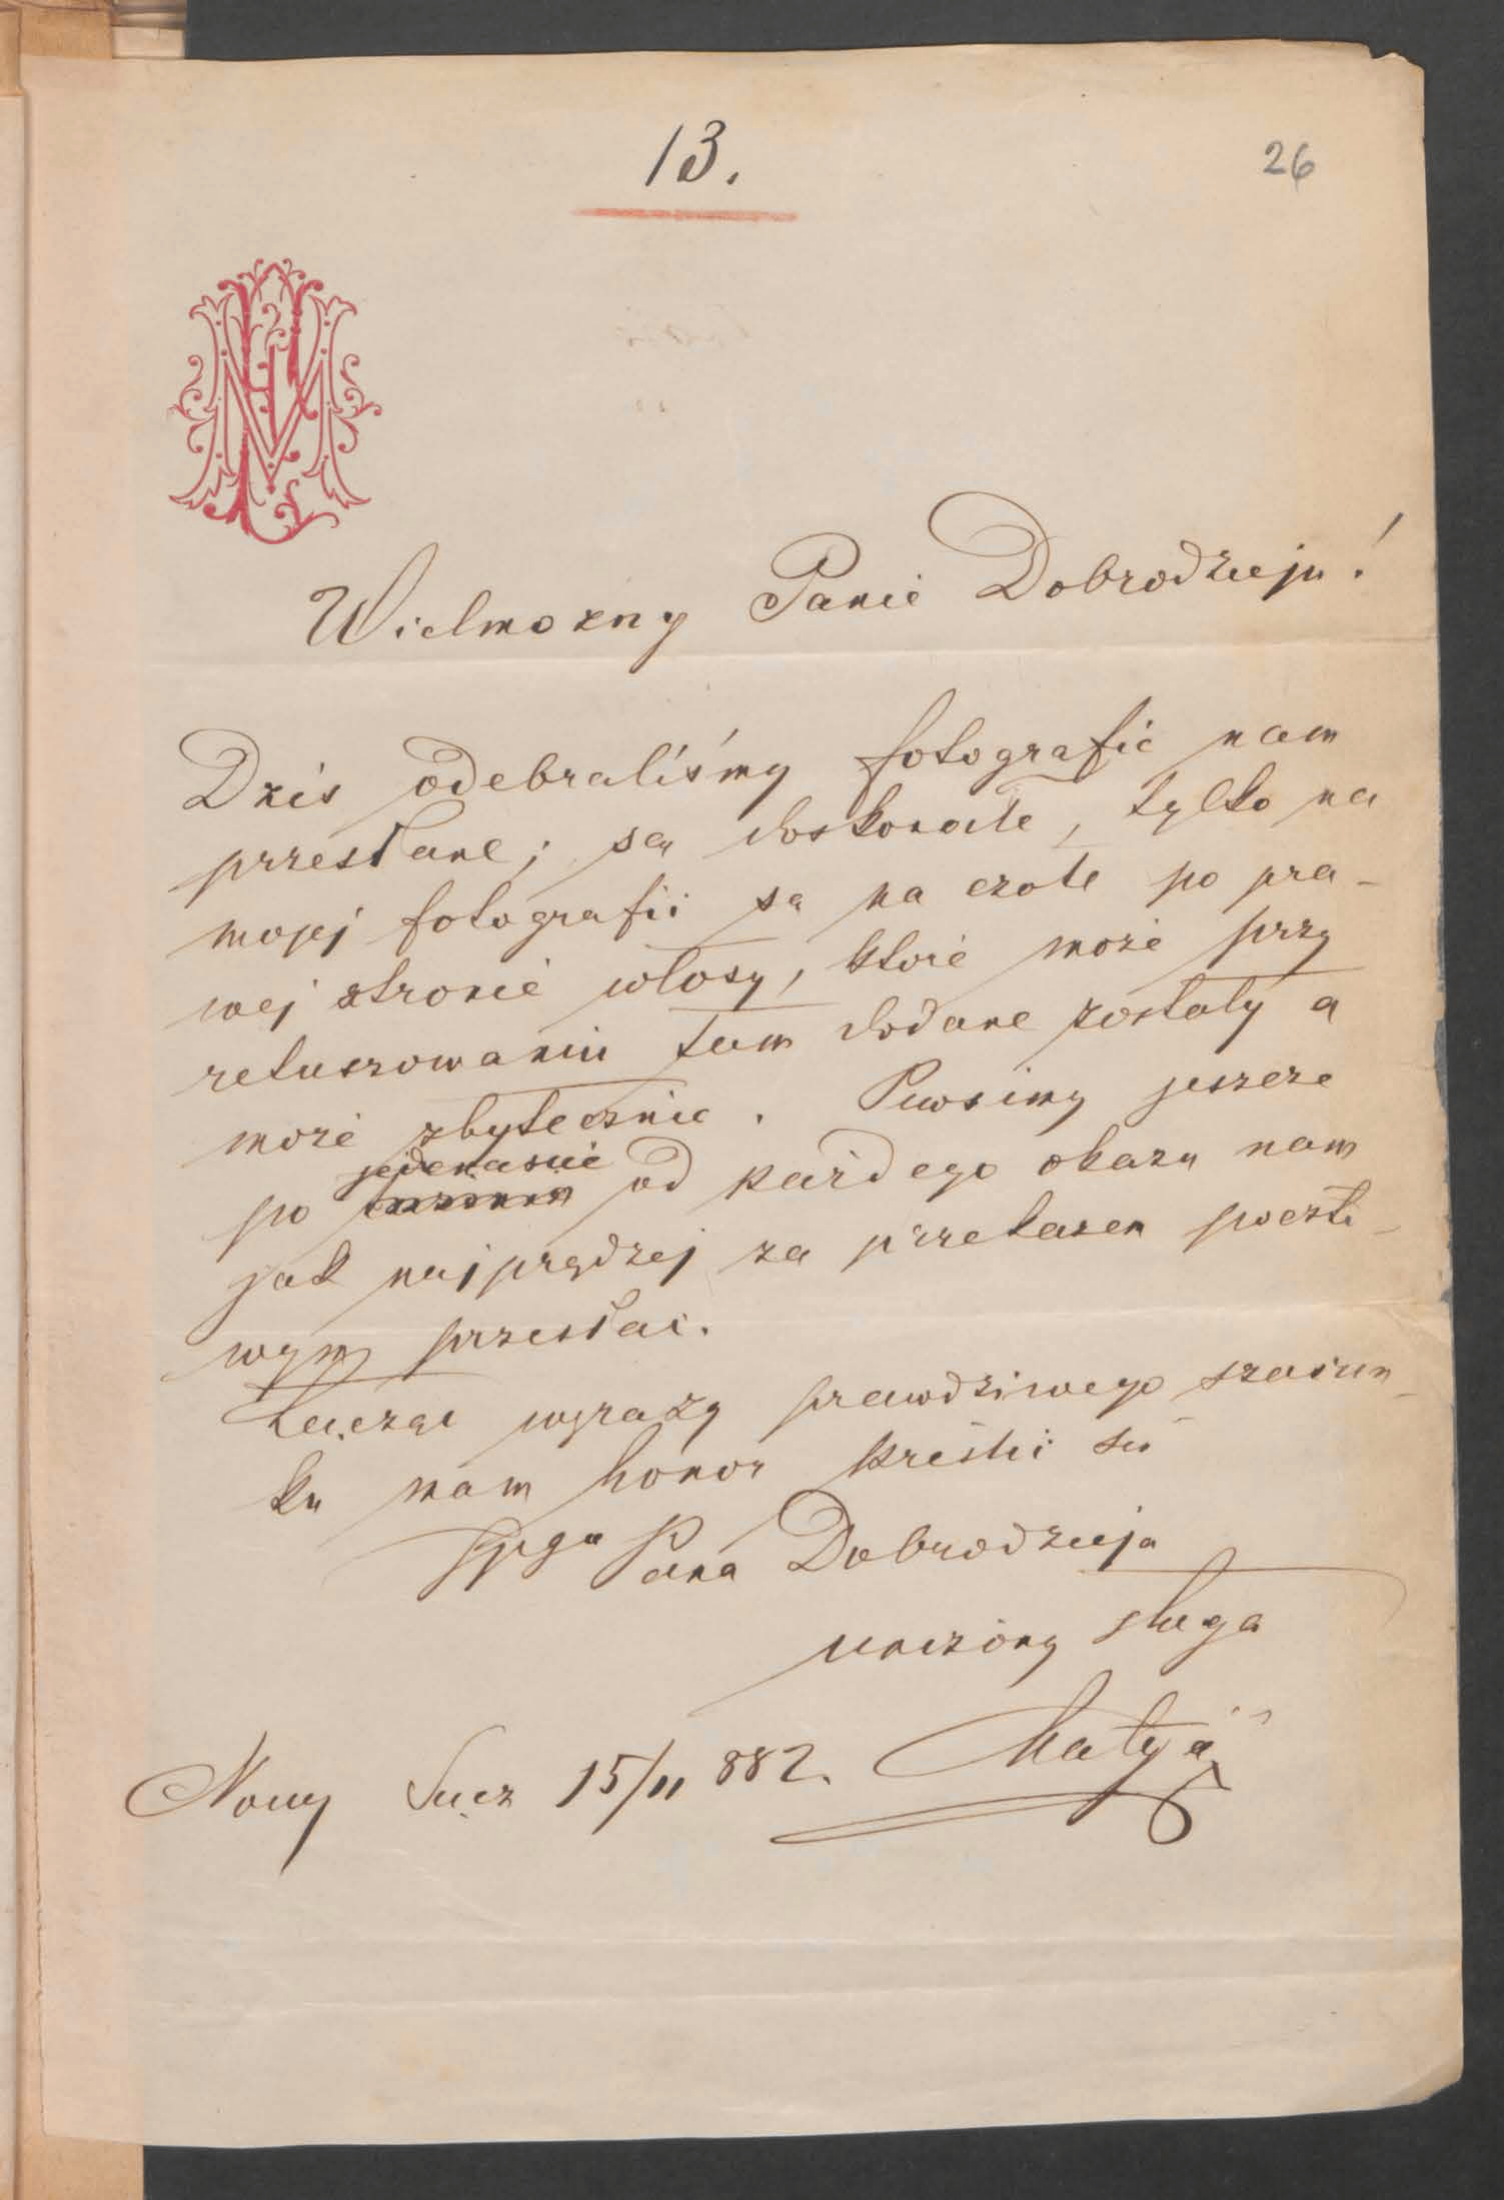 13.
26
Wielmożny Panie Dobrodzieju!
Dziś odebraliśmy fotografie nam
przesłane; są doskonałe, tylko na
mojej fotografii są na czole po pra-
wej stronie włosy, które może przy
retuszowaniu tam dodane zostały a
może zbytecznie. Prosimy jeszcze
jedenaście
po od każdego okazu nam
jak najprędzej za przekazem poczto-
wym przesłać.
Łącząc wyrazy prawdziwego szacun-
ku mam honor kreślić się
Pana Dobrodzieja
uniżony sługa
Nowy Sącz 15/11 882. Matyja